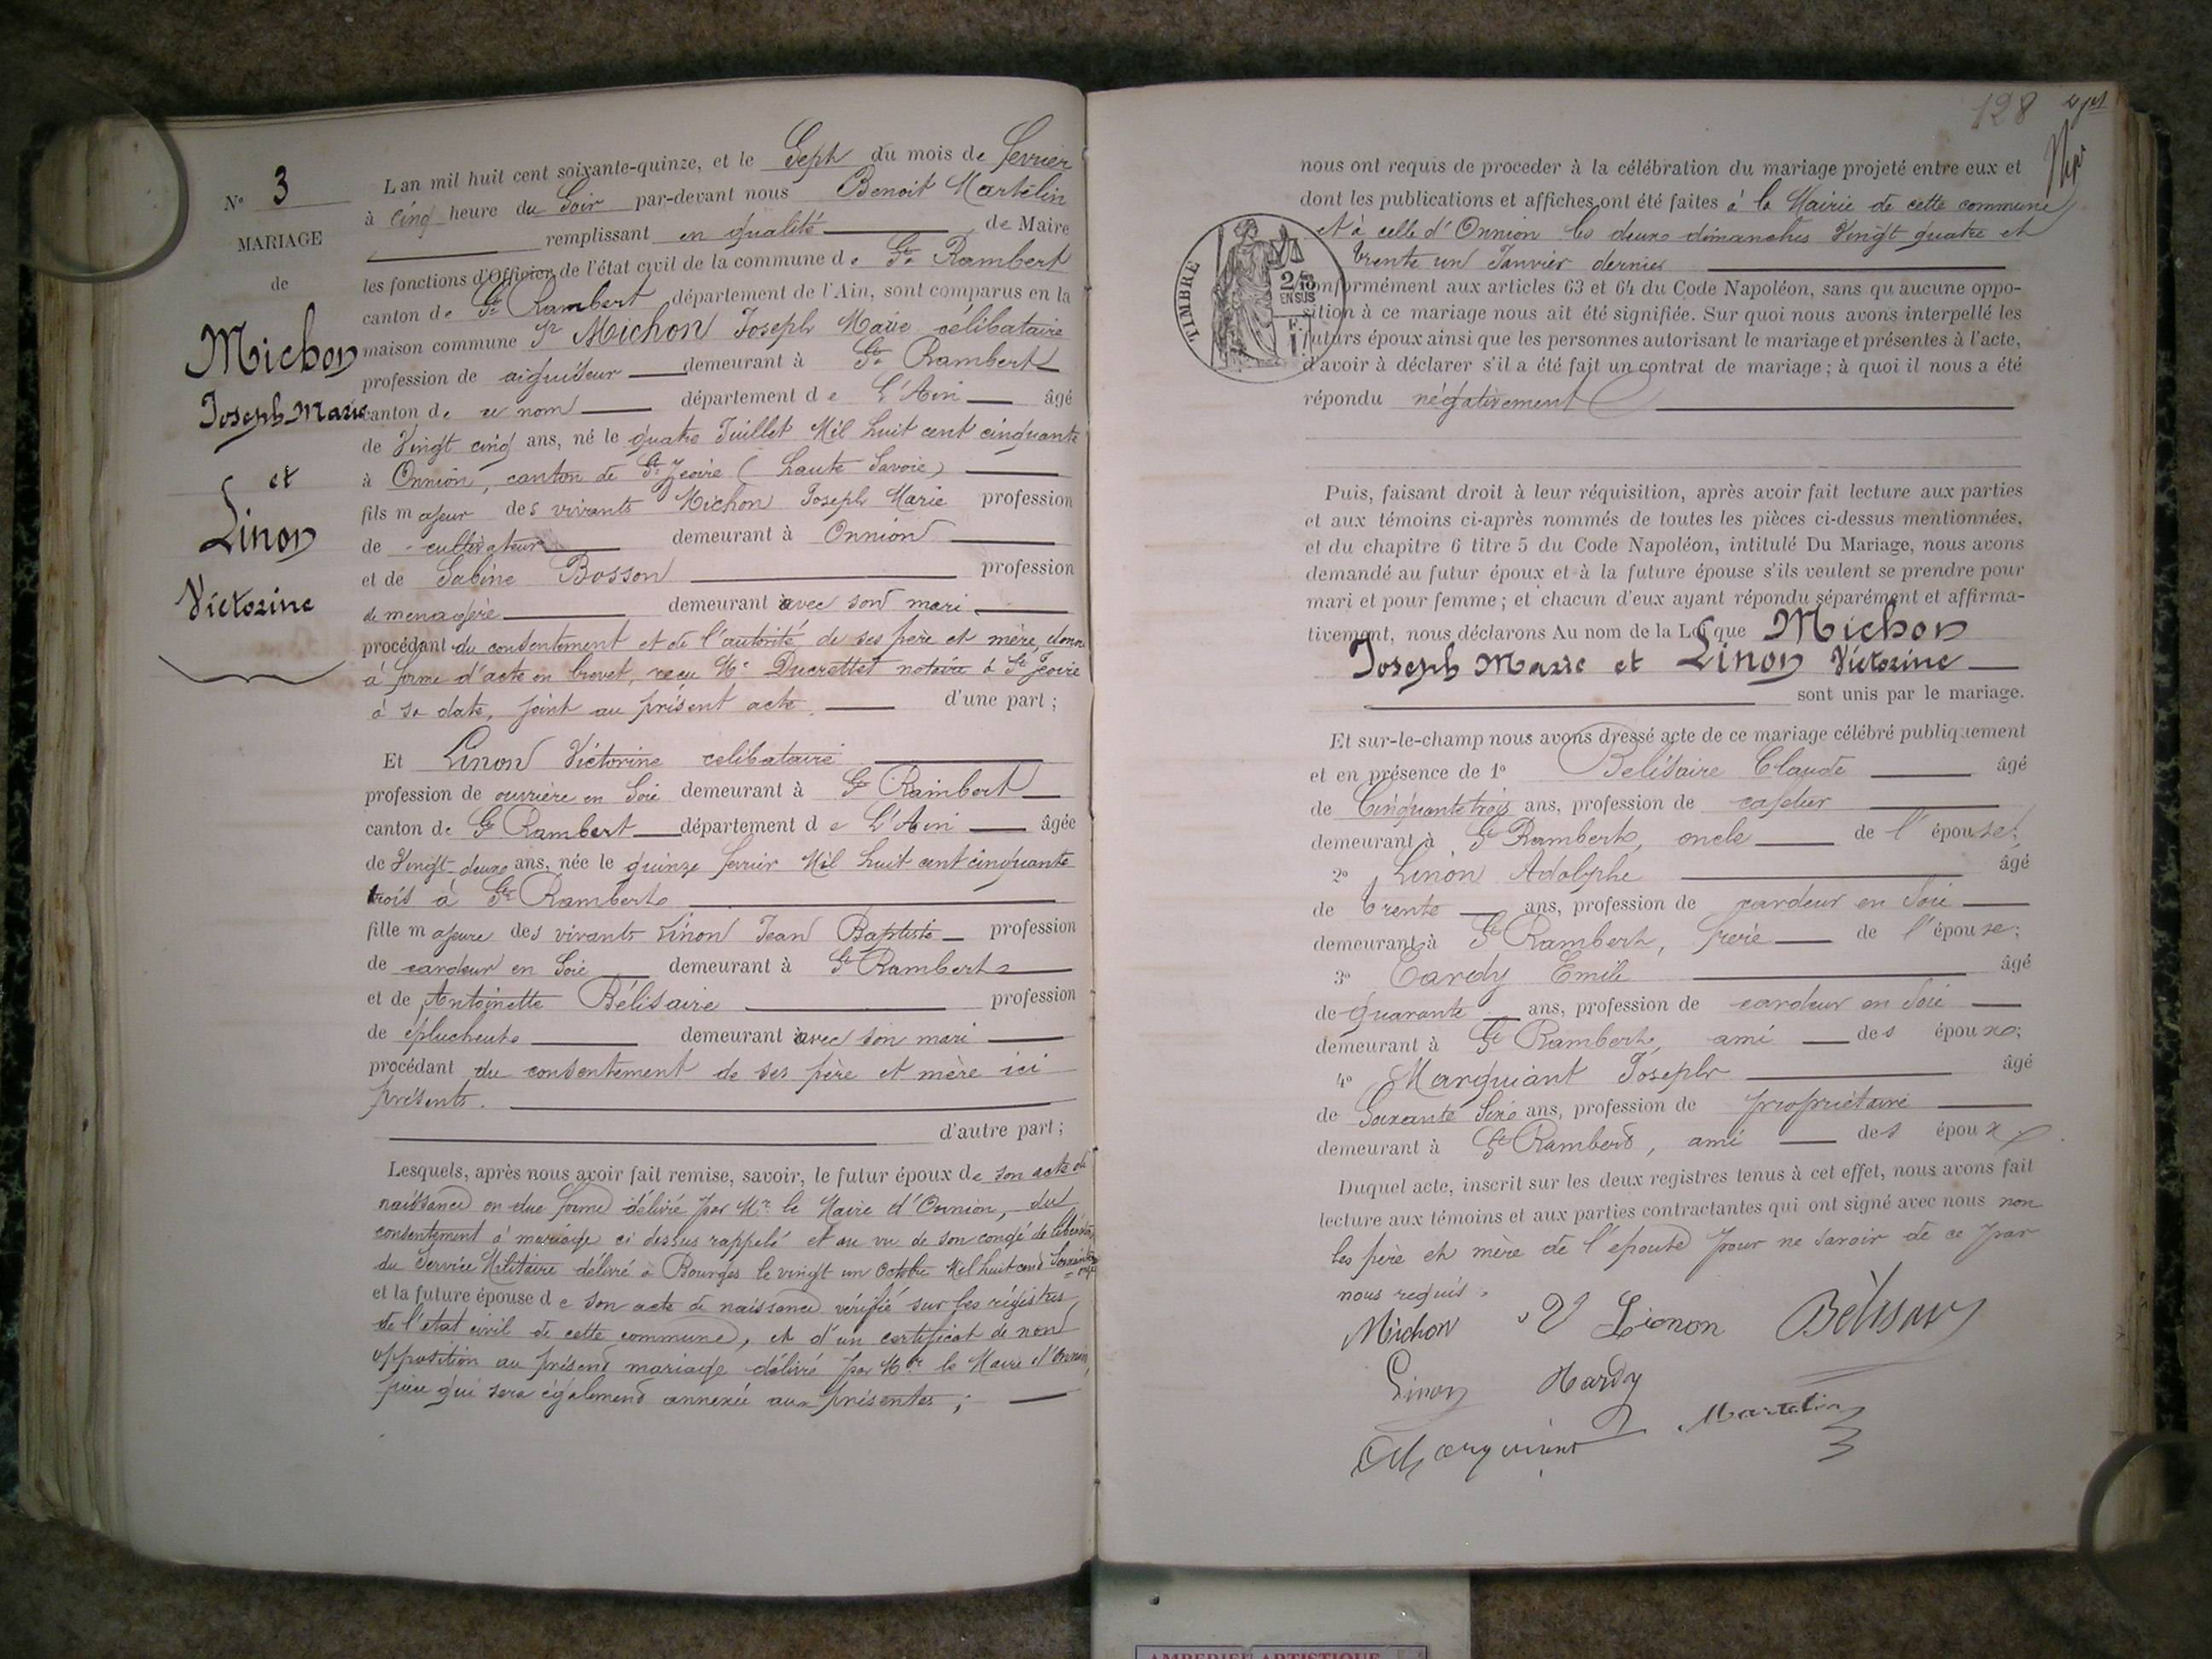 N° 3
MARIAGE
de
Michon
Joseph Marie
et
Linon
Victorine
L'an mil huit cent soixante-quinze, et le Sept du mois de fevrier
à cinq heure du Soir par-devant nous Benoit Martelin
remplissant en qualité de Maire
les fonctions d'Officier de l'état civil de la commune de St Rambert
canton de St Rambert département de l'Ain, sont comparus en la
maison commune Sr Michon Joseph Marie célibataire
profession de aiguiseur demeurant à St Rambert
canton de ce nom département de L'Ain âgé
de Vingt cinq ans, né le quatre Juillet Mil huit cent cinquante
à Onnion, canton de St Jeoire (haute Savoie)
fils majeur des vivants Michon Joseph Marie profession
de cultivateur demeurant à Onnion
et de Sabine Bosson profession
de menagère demeurant avec son mari
procédant du consentement et de l'autorité de ses père et mère, donné
à forme d'acte en brevet, recu Me Ducrettet notaire à St Jeoire
à sa date, joint au présent acte. d'une part ;
Et Linon Victorine celibataire
profession de ouvrière en Soie demeurant à St Rambert
canton de St Rambert département de L'Ain âgée
de Vingt-deux ans, née le quinze fevrier Mil huit cent cinquante
trois à St Rambert
fille majeure des vivants Linon Jean Baptiste profession
de cardeur en Soie demeurant à St Rambert
et de Antoinette Bélisaire profession
de éplucheuse demeurant avec son mari
procédant du consentement de ses père et mère ici
présents.
d'autre part ;
Lesquels, après nous avoir fait remise, savoir, le futur époux de son acte de
naissance en due forme délivré par Mr le Maire d'Onnion, du
consentement à mariage ci dessus rappelé et au vu de son congé de libération
du Service Militaire délivré à Bourges le vingt un octobre Mil huit cent Soixante
et la future épouse de son acte de naissance vérifié sur les régistres
de l'état civil de cette commune, et d'un certificat de non
opposition au présent mariage délivré par Mr le Maire d'Onnion,
pièce qui sera également annexée aux présentes ;
128
nous ont requis de proceder à la célébration du mariage projeté entre eux et
dont les publications et affiches ont été faites à la Mairie de cette commune
et à celle d'Onnion les deux dimanches Vingt quatre et
trente un Janvier dernier
TIMBRE
2/10
EN SUS
conformément aux articles 63 et 64 du Code Napoléon, sans qu'aucune oppo-
sition à ce mariage nous ait été signifiée. Sur quoi nous avons interpellé les
futurs époux ainsi que les personnes autorisant le mariage et présentes à l'acte,
d'avoir à déclarer s'il a été fait un contrat de mariage ; à quoi il nous a été
répondu négativement
Puis, faisant droit à leur réquisition, après avoir fait lecture aux parties
et aux témoins ci-après nommés de toutes les pièces ci-dessus mentionnées,
et du chapitre 6 titre 5 du Code Napoléon, intitulé Du Mariage, nous avons
demandé au futur époux et à la future épouse s'ils veulent se prendre pour
mari et pour femme ; et chacun d'eux ayant répondu séparément et affirma-
tivement, nous déclarons Au nom de la Loi que Michon
Joseph Marie et Linon Victorine
sont unis par le mariage.
Et sur-le-champ nous avons dressé acte de ce mariage célébré publiquement
et en présence de 1° Belisaire Claude âgé
de Cinquante trois ans, profession de
demeurant à St Rambert, oncle de l'épouse ;
2° Linon Adolphe âgé
de trente ans, profession de cardeur en Soie
demeurant à St Rambert, frère de l'épouse ;
3° Tardy Emile âgé
de quarante ans, profession de cardeur en Soie
demeurant à St Rambert, ami des époux ;
4° Marquiant Joseph âgé
de Soixante Six ans, profession de propriétaire
demeurant à St Rambert, ami des époux
Duquel acte, inscrit sur les deux registres tenus à cet effet, nous avons fait
lecture aux témoins et aux parties contractantes qui ont signé avec nous non
les père et mère de l'épouse pour ne savoir de ce par
nous requis.
Michon V Lionon Bélisair
Linon Tardy
Marquiant Martelin
AMBERIEU ARTISTIQUE